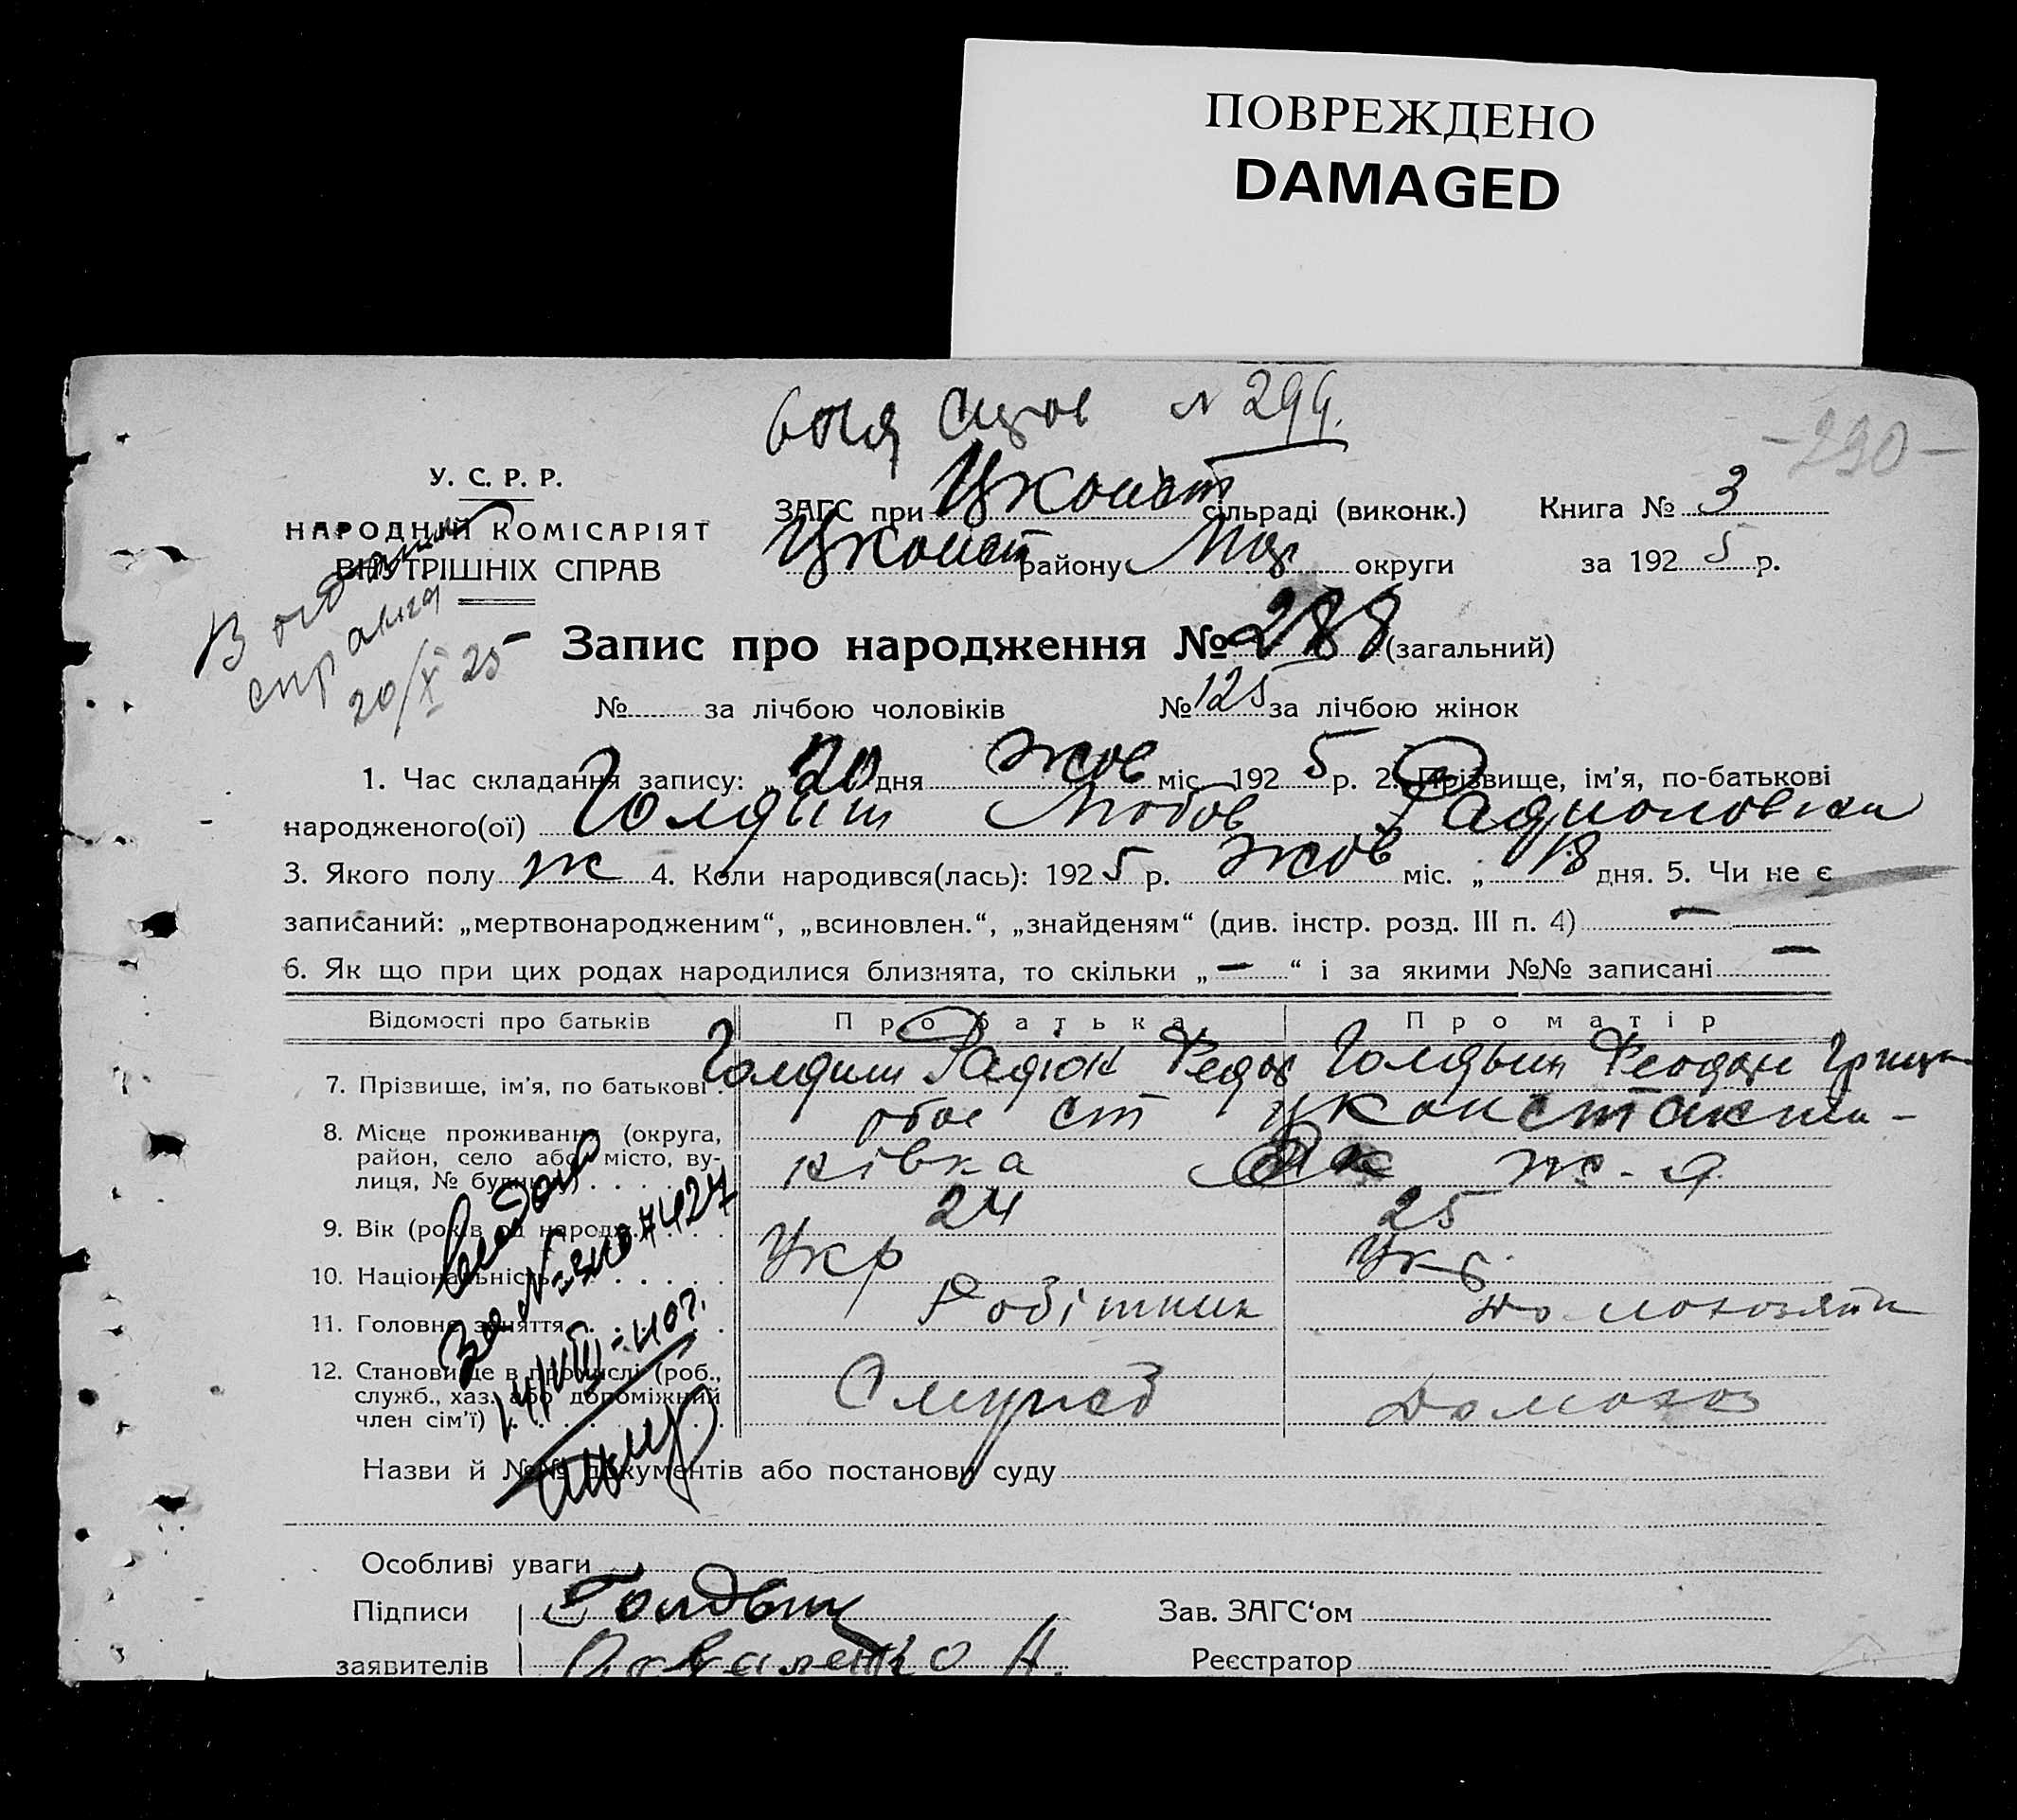 ПОВРЕЖДЕНО
DAMAGED
№ 294.
-290-
У. С. Р. Р.
НАРОДНИЙ КОМІСАРІЯТ
ВНУТРІШНІХ СПРАВ
ЗАГС при Уконст сільраді (виконк.) Книга № 3
Уконст району округи за 1925 р.
20/X 25
Запис про народження № 288 (загальний)
№ за лічбою чоловіків № 125 за лічбою жінок
1. Час складання запису: „20 дня жов міс. 1925 р. 2. Прізвище, ім’я, по-батькові
народженого(ої) Голдиш Любов Радионовна
3. Якого полу ж 4. Коли народився(лась): 1925 р. жов міс. „ 18 дня. 5. Чи не є
записаний: „мертвонародженим“, „всиновлен.“, „знайденям“ (див. інстр. розд. III п. 4) —
6. Як що при цих родах народилися близнята, то скільки „—“ і за якими №№ записані —
Відомості про батьків Про батька Про матір
7. Прізвище, ім’я, по батькові Голдиш Радіон Федор Голдыш Феодос Гриц
8. Місце проживання (округа, район, село або місто, вулиця, № будинку) обое ст Уконстантиновка
9. Вік (років од народж.) 24 25
10. Національність Укр Укр.
11. Головне заняття Робітник Домохозяйк
12. Становище в промислі (роб., служб., хаз. або допоміжний член сім’ї) Домохоз
Назви й №№ документів або постанови суду
Особливі уваги
Підписи Голдыш Зав. ЗАГС‘ом
заявителів Реєстратор